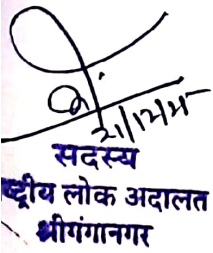 सदस्य
ष्ट्रीय लोक अदालत
श्रीगंगानगर